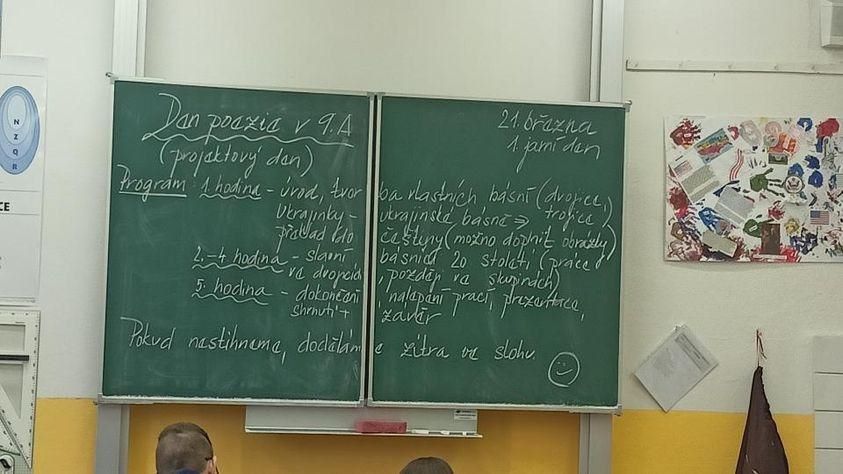 Den poezie v 9.A
21. března
1. jarní den
(projektový den)
Program: 1. hodina - úvod, tvorba vlastních básní (dvojice,
trojice)
Ukrajinky - ukrajinské básně ⇒
překlad do češtiny (možno doplnit obrázky)
2.-4. hodina - slavní básníci 20. století (práce
ve dvojicích, později ve skupinách)
5. hodina - dokončení, nalepení prací, prezentace,
shrnutí + závěr
Pokud nestihneme, doděláme zítra ve slohu. ☺
N
Z
Q
R